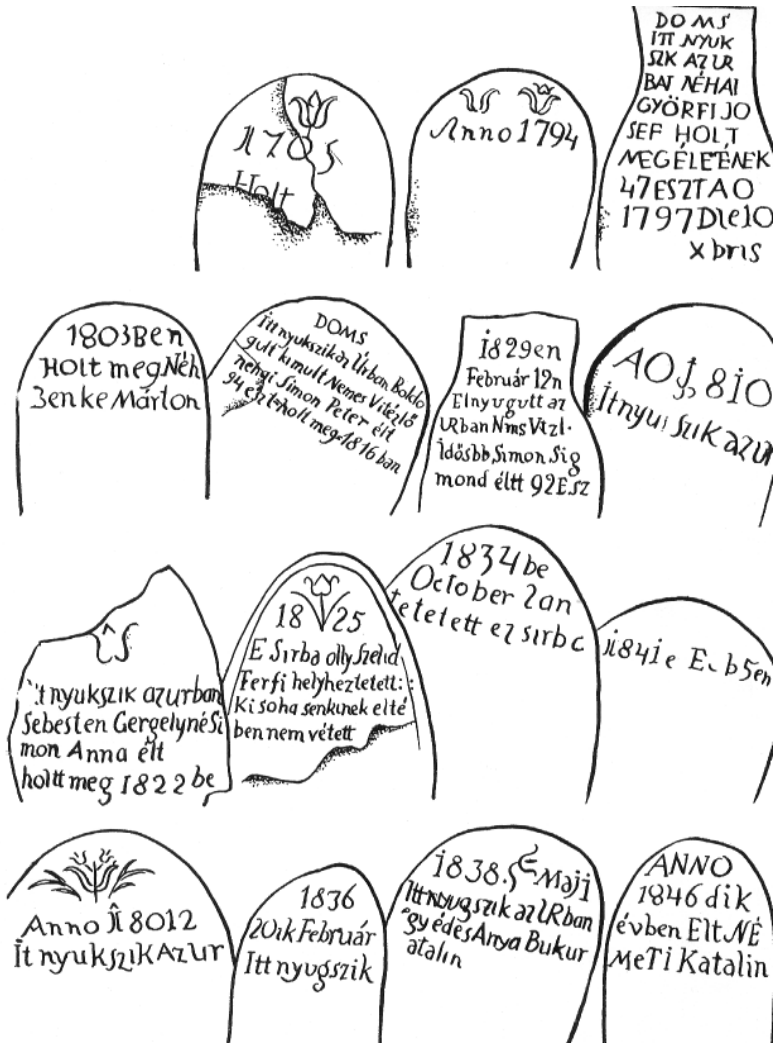 1705
Holt
Anno 1794
DOMS
ITT NYUK
SZK AZ UR
BAT NÉHAI
GYÖRFI JO
SEF HOLT
MEGÉLETÉNEK
47 ESZT AO
1797 Die 10
x bris
1803 Ben
Holt meg Néh
Benke Márton
DOMS
Itt nyukszik az Úrban Boldo
gult kimult Nemes Vitézlő
nehai Simon Peter élt
94 ezt holt meg 1816 ban
i829en
Február 12n
Elnyugutt az
URban Nms Vizl.
Idősbb Simon Sig
mond éltt 92 Esz
AO i8i0
Itnyuszik azur
itnyukszik azurban
Sebesten Gergelyné Si
mon Anna élt
holtt meg 1822 be
1825
E Sirba olly Szelid
Ferfi helyheztetett:
Ki soha senkinek elté
ben nem vétett
1834 be
October 2an
tetetett ez sirbc
i84i e E b 5en
Anno i8012
it nyukszik Az ur
1836
20ik Február
Itt nyugszik
i838. Maji
itt nyugszik az URban
egy édes Anya Bukur
atalin
ANNO
1846 dik
évben Elt NÉ
MeTi Katalin